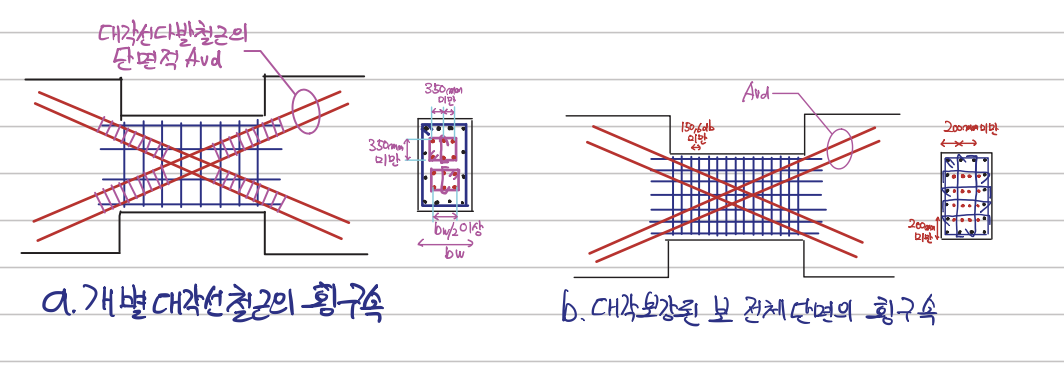 대각선다발철근의
단면적 Avd
350mm
미만
350mm
미만
bw/2 이상
bw
a. 개별 대각선 철근의 횡구속
Avd
150,6db
미만
200mm미만
200mm
미만
b. 대각보강된 보 전체 단면의 횡구속